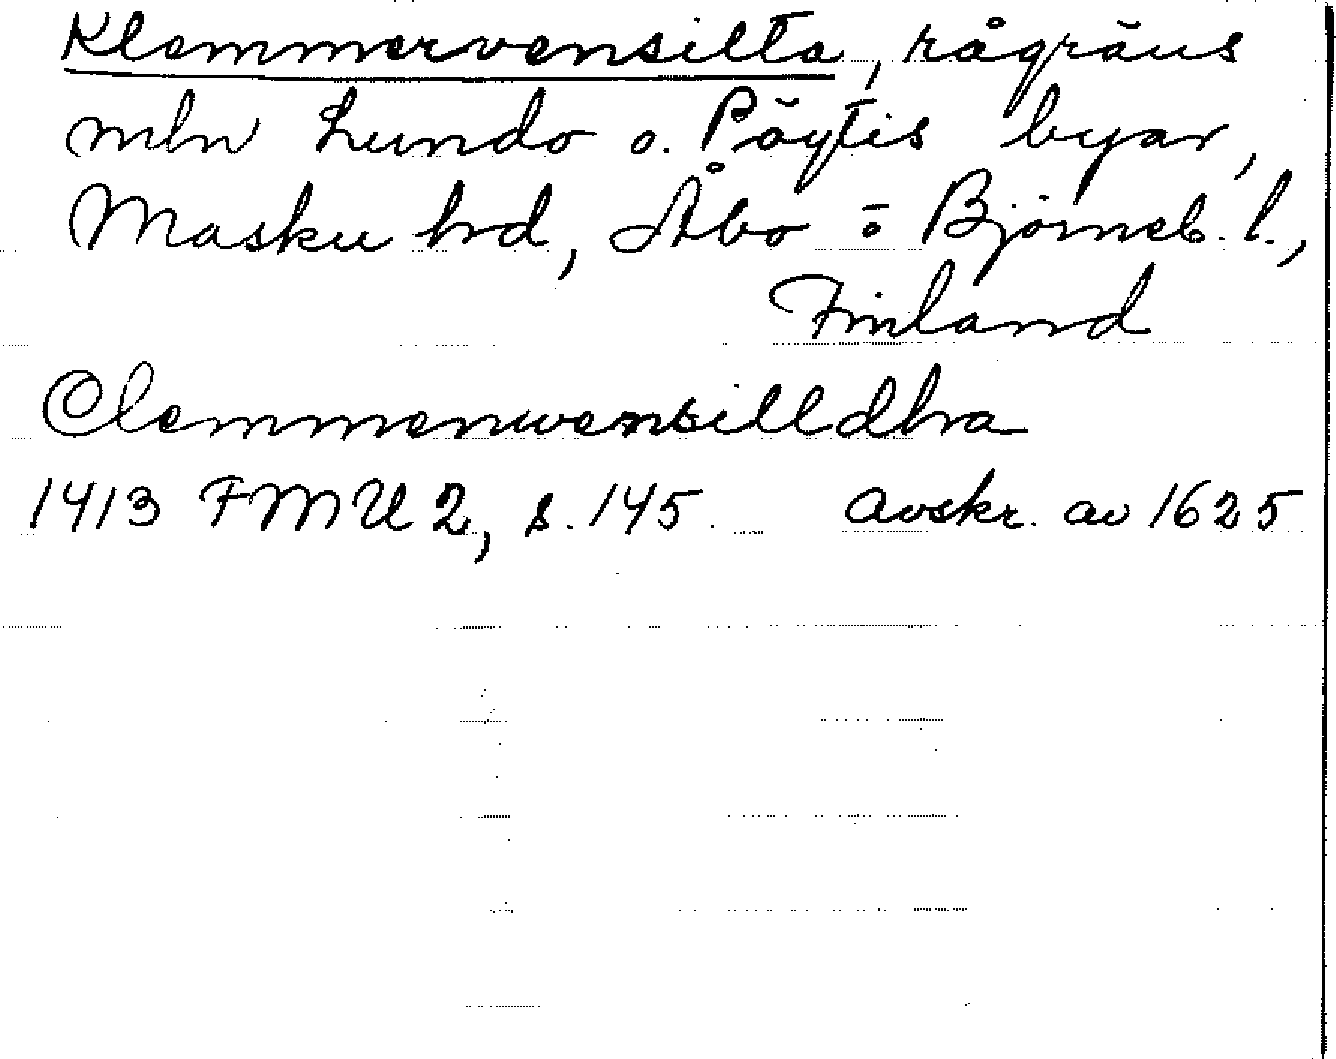 Klemmervensilta, rågräns
mln Lundo o. Pöytis byar,
Masku hd, Åbo o. Björneb. l.,
Finland
Clemmenwensilldhra
1413 FMU 2, s. 145. avskr. av 1625